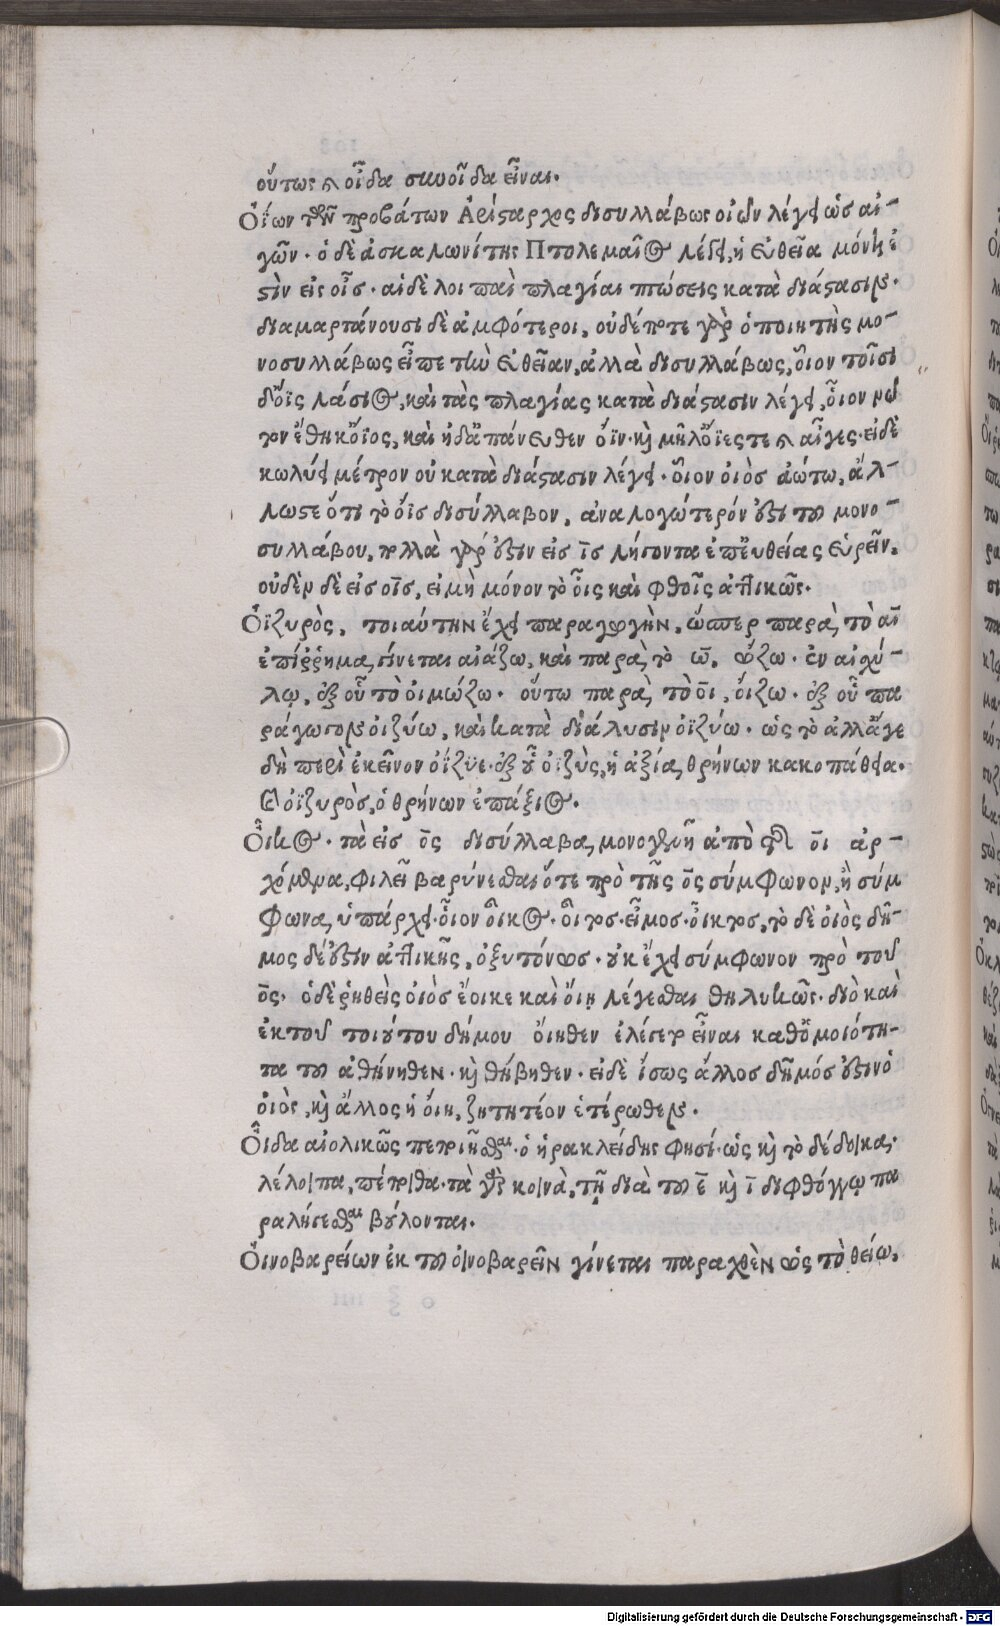 οὕτως καὶ οἶδα συνοῖδα εἶναι.
Ὀΐων τῶν προβάτων Ἀρίσαρχος δισυλλάβως οἰῶν λέγει ὡσ αἰ-
γῶν. ὁ δὲ ἀσκαλωνίτης Πτολεμαῖος λέξει, ἡ εὐθεῖα μόνη ἐ
στὶν εἰς οἶσ. αἱ δὲ λοιπαὶ πλαγίαι πτώσεις κατὰ διάστασιν.
διαμαρτάνουσι δὲ ἀμφότεροι, οὐδέποτε γὰρ ὁ ποιητὴς μο-
νοσυλλάβως εἶπε τὴν εὐθεῖαν, ἀλλὰ δισυλλάβως, οἷον τοῖσι
δ' ὄϊς λάσιος, καὶ τὰς πλαγίας κατὰ διάστασιν λέγει, οἷον νῶ
τον ἔθηκ' ὄϊος, καὶ ἠδ' ἀπάνευθεν ὄϊν. καὶ μῆλ' ὄϊές τε καὶ αἶγες. εἰ δὲ
κωλύει μέτρον οὐ κατὰ διάστασιν λέγει. οἷον οἰὸσ ἀώτω, ἄλ-
λωστε ὅτι τὸ ὄϊσ δισύλλαβον, ἀναλογώτερόν ἐστι τοῦ μονο-
συλλάβου, πολλὰ γάρ ἐστιν εἰσ ῑσ λήγοντα ἐπ' εὐθείας εὑρεῖν,
οὐδὲν δὲ εἰσ οῑσ, εἰ μὴ μόνον τὸ οἶς καὶ φθοῖς ἀττικῶς.
Ὀϊζυρὸς, τοιαύτην ἔχει παραγωγὴν, ὥσπερ παρὰ τὸ αἲ
ἐπίῤῥημα, γίνεται αἰάζω, καὶ παρὰ τὸ ω̄, ὤζω. ἐν αἰσχύ-
λῳ, ἐξ οὗ τὸ οἰμώζω. οὕτω παρὰ τὸ ōι, οἴζω. ἐξ οὗ πα
ράγωγον οἰζύω, καὶ κατὰ διάλυσιν ὀϊζύω. ὡς τὸ ἀλλ' ἄγε
δὴ περὶ ἐκεῖνον ὀΐζϋε. ἐξ οὗ ὀϊζὺς, ἡ ἀξία θρήνων κακοπάθεια.
καὶ ὀϊζυρὸσ, ὁ θρήνων ἐπάξιος.
Οἶκος. τὰ εἰσ ōς δισύλλαβα, μονογενῆ ἀπὸ τῆς ōι ἀρ-
χόμενα, φιλεῖ βαρύνεσθαι ὅτε πρὸ τῆς ōς σύμφωνον, ἢ σύμ
φωνα, ὑπάρχει. οἷον οἶκος. οἶτος. οἶμος. οἶκτος, τὸ δὲ οἰὸς δῆ-
μος δέ ἐστιν ἀττικῆς, ὀξυτόνως. οὐκ ἔχει σύμφωνον πρὸ τοῦ
ōς. ὁ δὲ ῥηθεὶς οἰὸσ ἔοικε καὶ ὄιη λέγεσθαι θηλυκῶς. διὸ καὶ
ἐκ τοῦ τοιούτου δήμου ὄιηθεν ἐλέγετο εἶναι καθ' ὁμοιότη-
τα τοῦ ἀθήνηθεν. καὶ θήβηθεν. εἰ δὲ ἴσως ἄλλοσ δῆμόσ ἐστιν ὁ
οἰὸς, καὶ ἄλλος ἡ ὄιη, ζητητέον ἑτέρωθεν.
Οἶδα αἰολικῶς πετριῆσθαι. ὁ ἡρακλείδης φησί. ὡς καὶ τὸ δέδοικα.
λέλοιπα, πέποιθα. τὰ γὰρ κοινὰ, τῇ διὰ τοῦ ε̄ καὶ ῑ διφθόγγῳ πα
ραλήγεσθαι βούλονται.
Οἰνοβαρείων ἐκ τοῦ οἰνοβαρεῖν γίνεται παραχθὲν ὡς τὸ θείω,
Digitalisierung gefördert durch die Deutsche Forschungsgemeinschaft - DFG